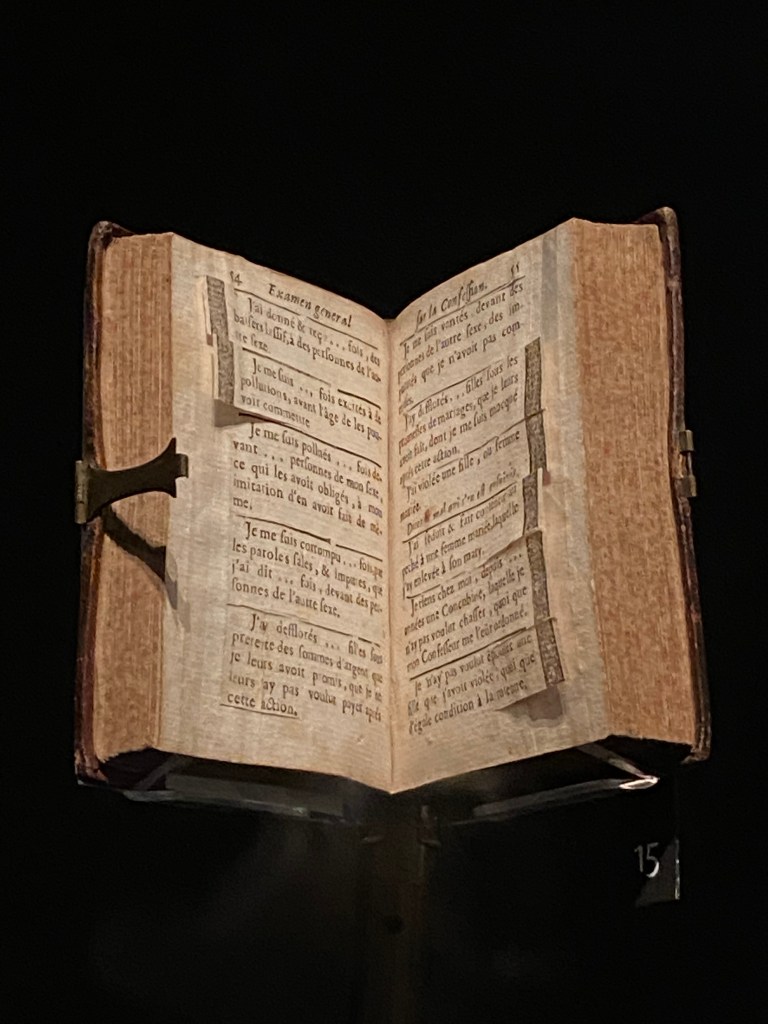 54
Examen general
J'ai donné & reç... fois, des
baisers lassifs, à des personnes de l'au-
tre sexe.
Je me suis ... fois excités à de
pollutions, avant l'âge de les pou-
voir commettre
Je me suis pollués ... fois de-
vant ... personnes de mon sexe,
ce qui les avoit obligés, à mon
imitation d'en avoir fait de mê-
me.
Je me suis corrompu ... fois par
les paroles sales, & impures, que
j'ai dit ... fois, devant des per-
sonnes de l'autre sexe.
J'ay defflorés ... filles sous
pretexte des sommes d'argent que
je leurs avoit promis, que je ne
leurs ay pas voulut payer après
cette action.
sur la Confession.
55
Je me suis vantés, devant des
personnes de l'autre sexe, des im-
puretés que je n'avoit pas com-
mises.
J'ay defflorés, ... filles sous les
promesses de mariages, que je leurs
avoit fait, dont je me suis mocqué
après cette action.
J'ai violée une fille, ou femme
mariée.
J'ai séduit & fait commettre
peché à une femme mariée, laquelle
j'ay enlevée à son mary.
Je tiens chez moi, depuis ...
années une Concubine, laquelle je
n'ay pas voulut chasser, quoi que
mon Confesseur me l'eût ordonné.
Je n'ay pas voulut épouser une
fille que j'avoit violée, quoi que
d'égale condition à la mienne.
15